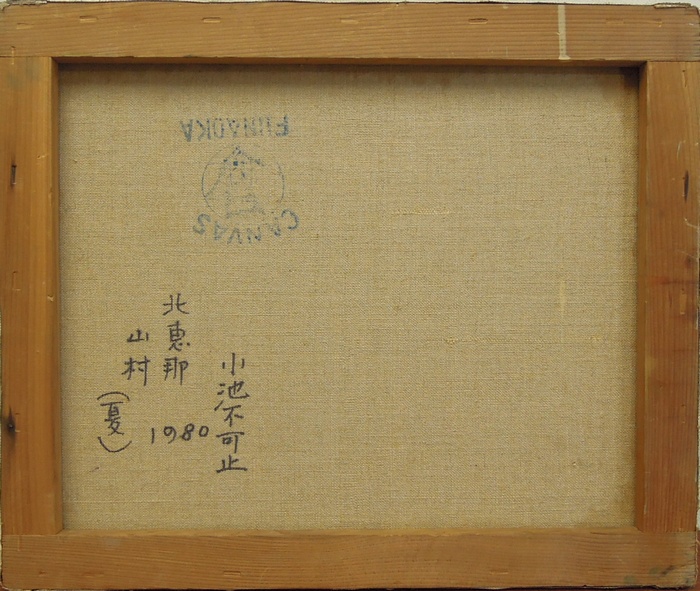 FUNAOKA
CANVAS
小池不可止
北恵那
1980
山村
(夏)